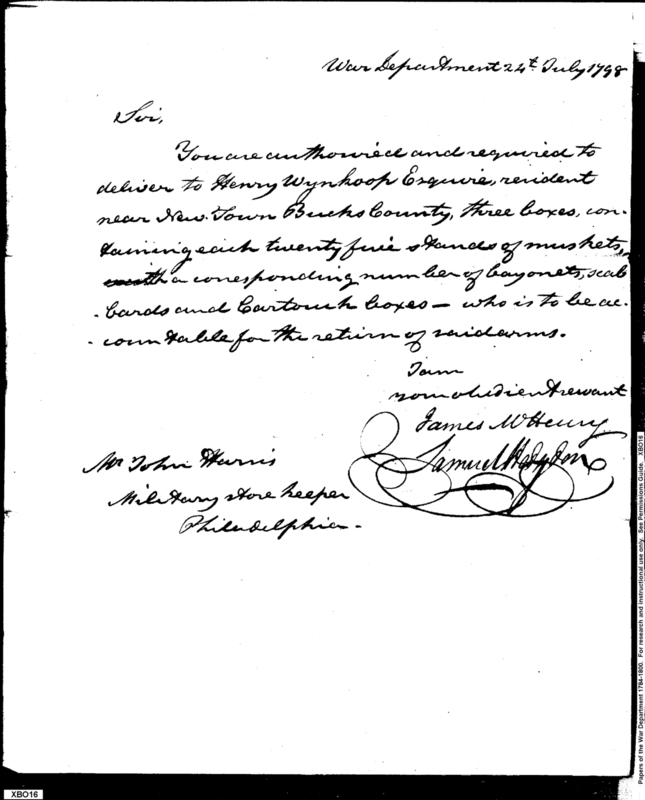 War Department 24th July 1798
Sir,
You are authorized and required to
deliver to Henry Wynkoop Esquire, resident
near New Town Bucks County, three boxes, con-
taining each twenty five stands of muskets,
a corresponding number of bayonets, scab
-bards and Cartouch boxes — who is to be ac-
-countable for the return of said arms.
I am
your obedient servant
James McHenry
Samuel Hodgdon
Mr John Harris
Military store keeper
Philadelphia -
XBO16
Papers of the War Department 1784-1800. For research and instructional use only. See Permissions Guide. XBO16